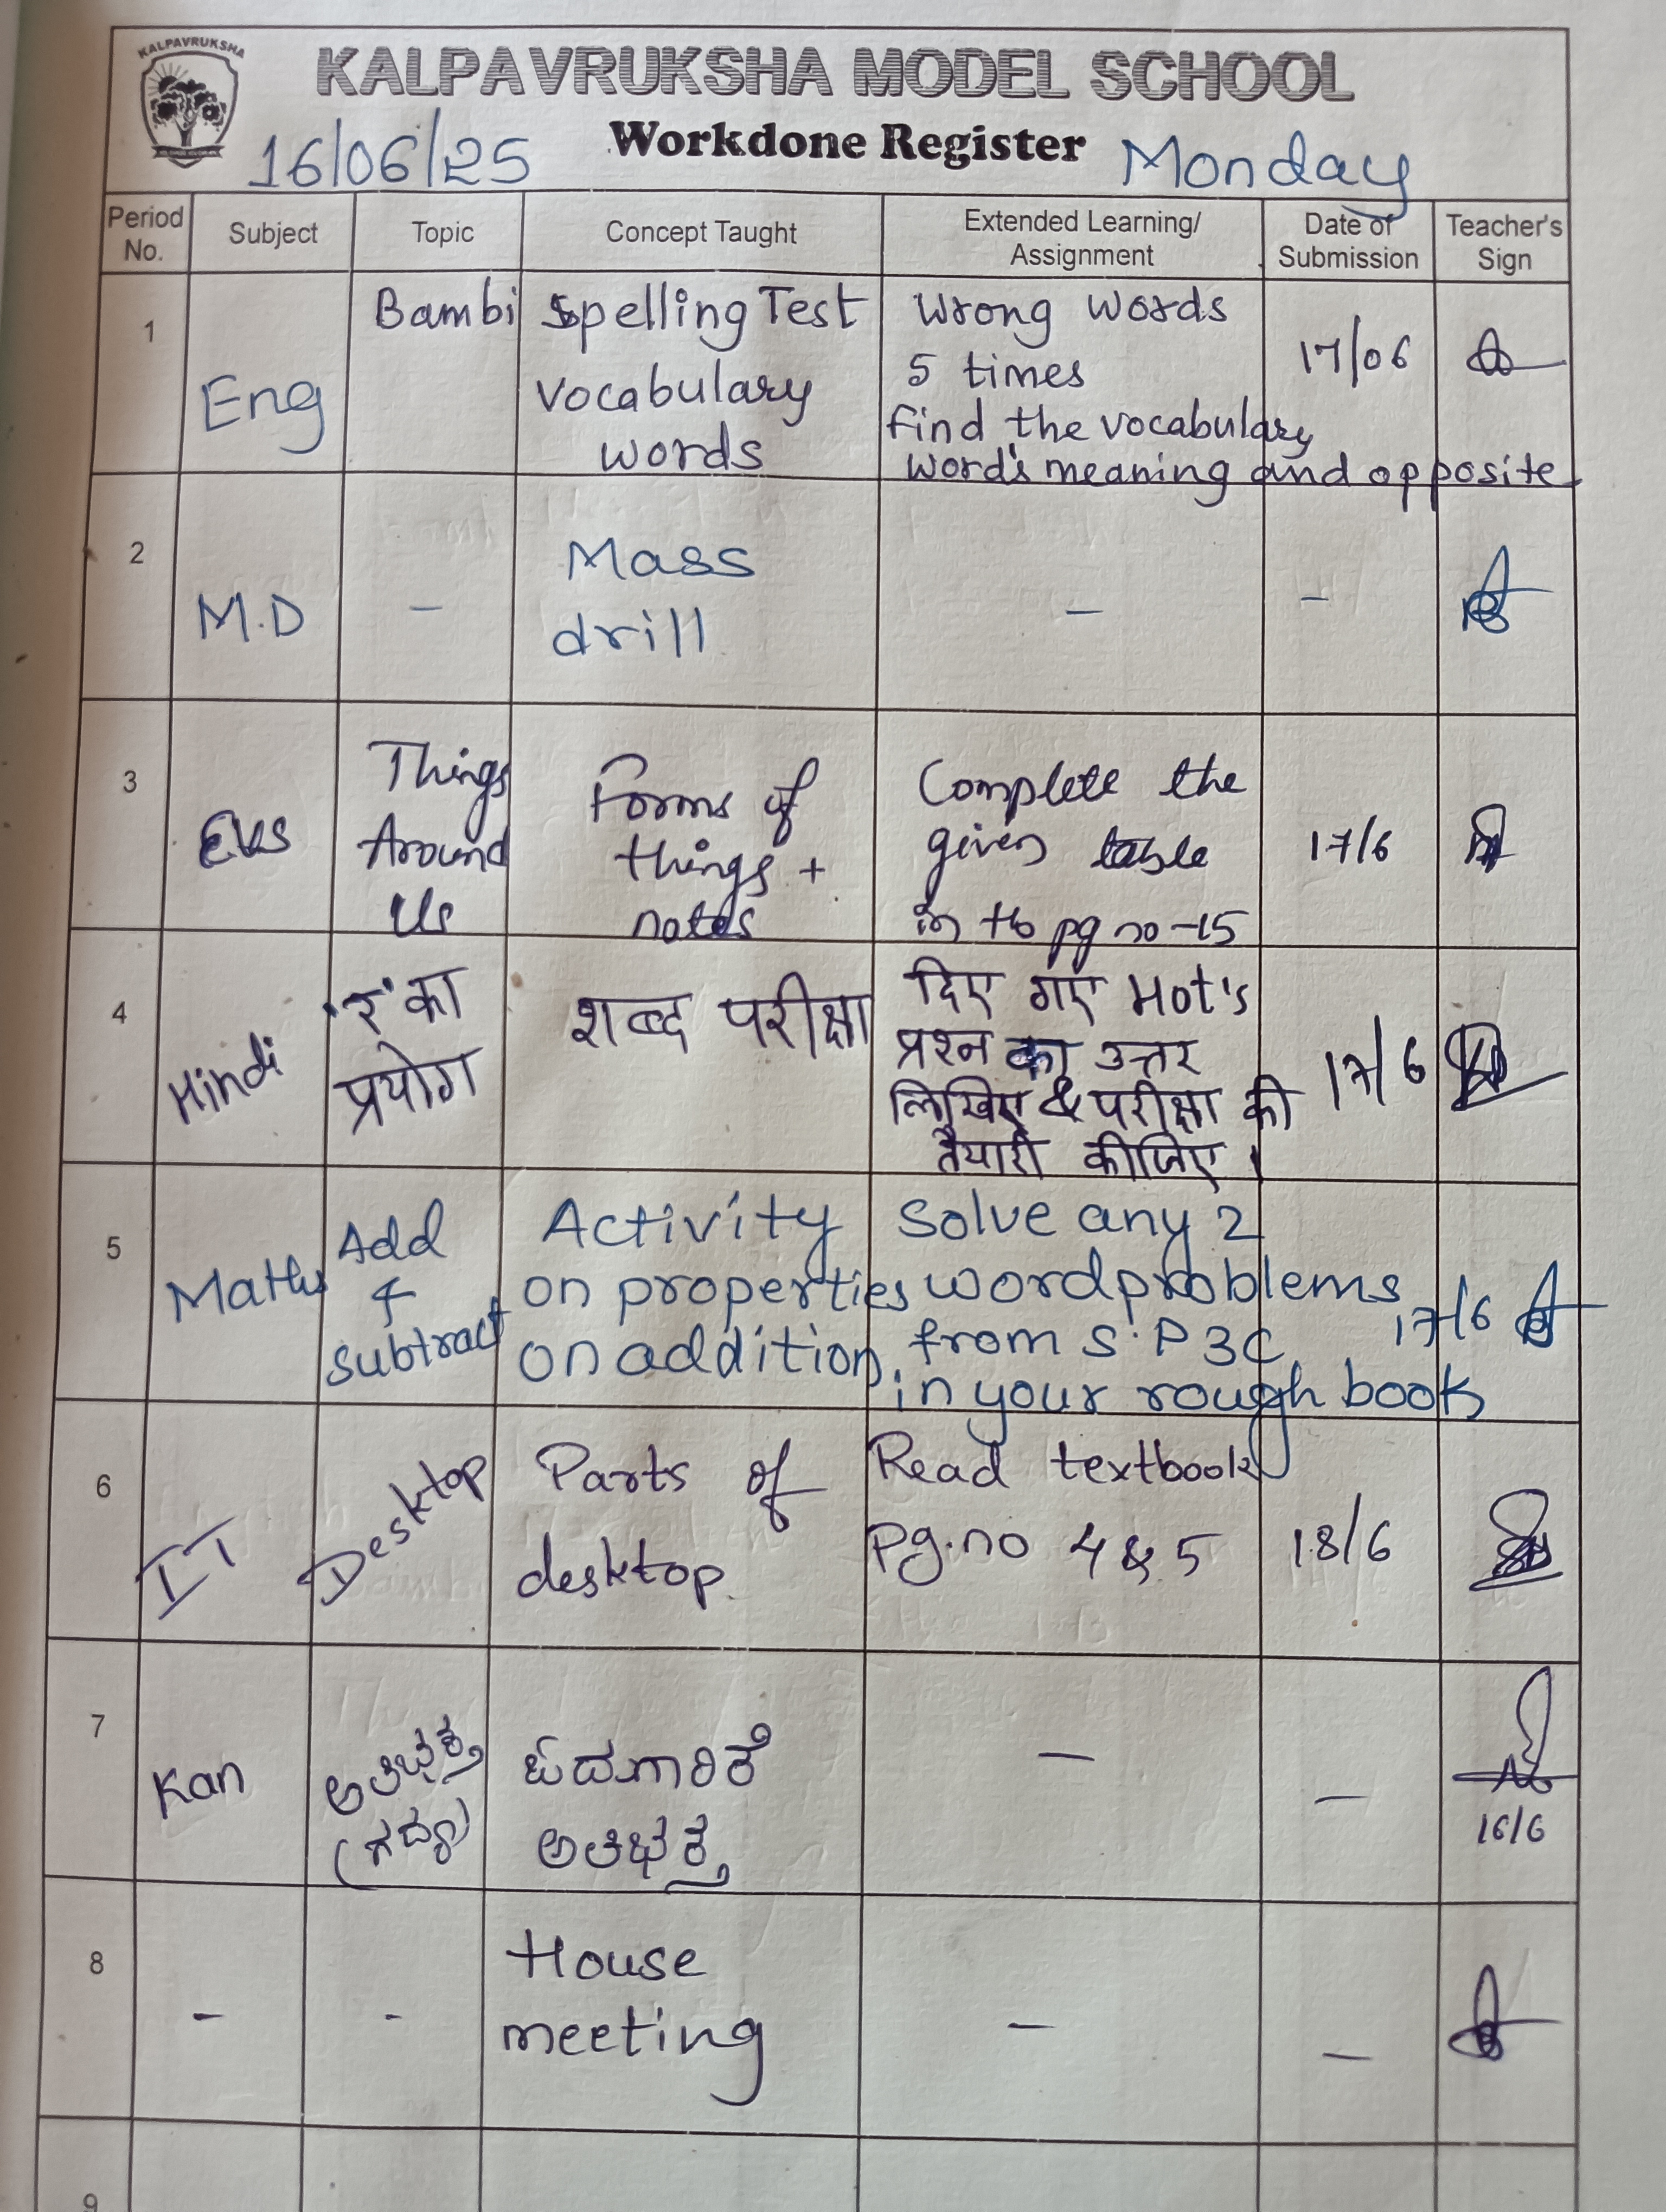 KALPAVRUKSHA
KALPAVRUKSHA MODEL SCHOOL
Workdone Register
16/06/25
Monday
Period No.
Subject
Topic
Concept Taught
Extended Learning/
Assignment
Date of
Submission
Teacher's
Sign
1
Eng
Bambi
Spelling Test
vocabulary
words
Wrong words
5 times
find the vocabulary
word's meaning and opposite
17/06
2
M.D
-
Mass
drill
-
-
3
EVS
Things
Around
Us
Forms of
things +
notes
Complete the
given table
in tb pg no -15
17/6
4
Hindi
'र' का
प्रयोग
शब्द परीक्षा
दिए गए Hot's
प्रश्न का उत्तर
लिखिए & परीक्षा की
तैयारी कीजिए।
17/6
5
Maths
Add
&
subtract
Activity
on properties
on addition
Solve any 2
wordproblems
from S.P 3C
in your rough book
17/6
6
IT
Desktop
Parts of
desktop.
Read textbook
Pg.no 4 & 5
18/6
7
Kan
(ಗದ್ಯ)
-
-
16/6
8
-
-
House
meeting
-
-
9